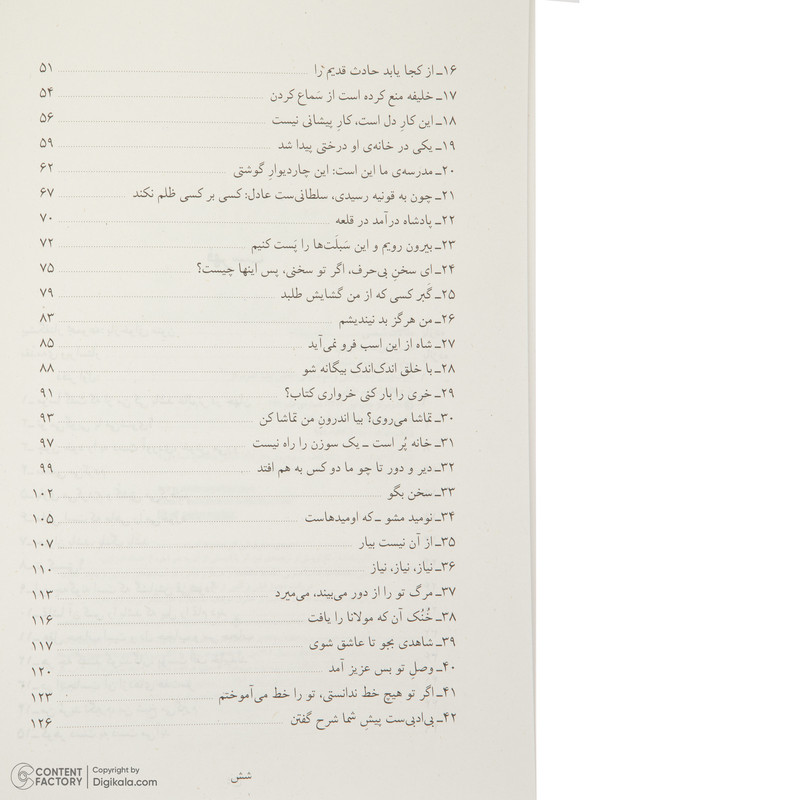 ۱۶ـ از کجا یابد حادث قدیم را ۵۱
۱۷ـ خلیفه منع کرده است از سَماع کردن ۵۴
۱۸ـ این کارِ دل است، کارِ پیشانی نیست ۵۶
۱۹ـ یکی در خانه‌ی او درختی پیدا شد ۵۹
۲۰ـ مدرسه‌ی ما این است: این چاردیوارِ گوشتی ۶۲
۲۱ـ چون به قونیه رسیدی، سلطانی‌ست عادل: کسی بر کسی ظلم نکند ۶۷
۲۲ـ پادشاه درآمد در قلعه ۷۰
۲۳ـ بیرون رویم و این سَبلَت‌ها را پَست کنیم ۷۲
۲۴ـ ای سخنِ بی‌حرف، اگر تو سخنی، پس اینها چیست؟ ۷۵
۲۵ـ گَبر کسی که از من گشایش طلبد ۷۹
۲۶ـ من هرگز بد نیندیشم ۸۳
۲۷ـ شاه از این اسب فرو نمی‌آید ۸۵
۲۸ـ با خلق اندک‌اندک بیگانه شو ۸۸
۲۹ـ خری را بار کنی خرواری کتاب؟ ۹۱
۳۰ـ تماشا می‌روی؟ بیا اندرونِ من تماشا کن ۹۳
۳۱ـ خانه پُر است ـ یک سوزن را راه نیست ۹۷
۳۲ـ دیر و دور تا چو ما دو کس به هم افتد ۹۹
۳۳ـ سخن بگو ۱۰۲
۳۴ـ نومید مشو ـ که اومیدهاست ۱۰۵
۳۵ـ از آن نیست بیار ۱۰۷
۳۶ـ نیاز، نیاز، نیاز ۱۱۰
۳۷ـ مرگ تو را از دور می‌بیند، می‌میرد ۱۱۳
۳۸ـ خُنُک آن که مولانا را یافت ۱۱۶
۳۹ـ شاهدی بجو تا عاشق شوی ۱۱۷
۴۰ـ وصلِ تو بس عزیز آمد ۱۲۰
۴۱ـ اگر تو هیچ خط ندانستی، تو را خط می‌آموختم ۱۲۳
۴۲ـ بی‌ادبی‌ست پیشِ شما شرح گفتن ۱۲۶
شش
CONTENT FACTORY
Copyright by
Digikala.com